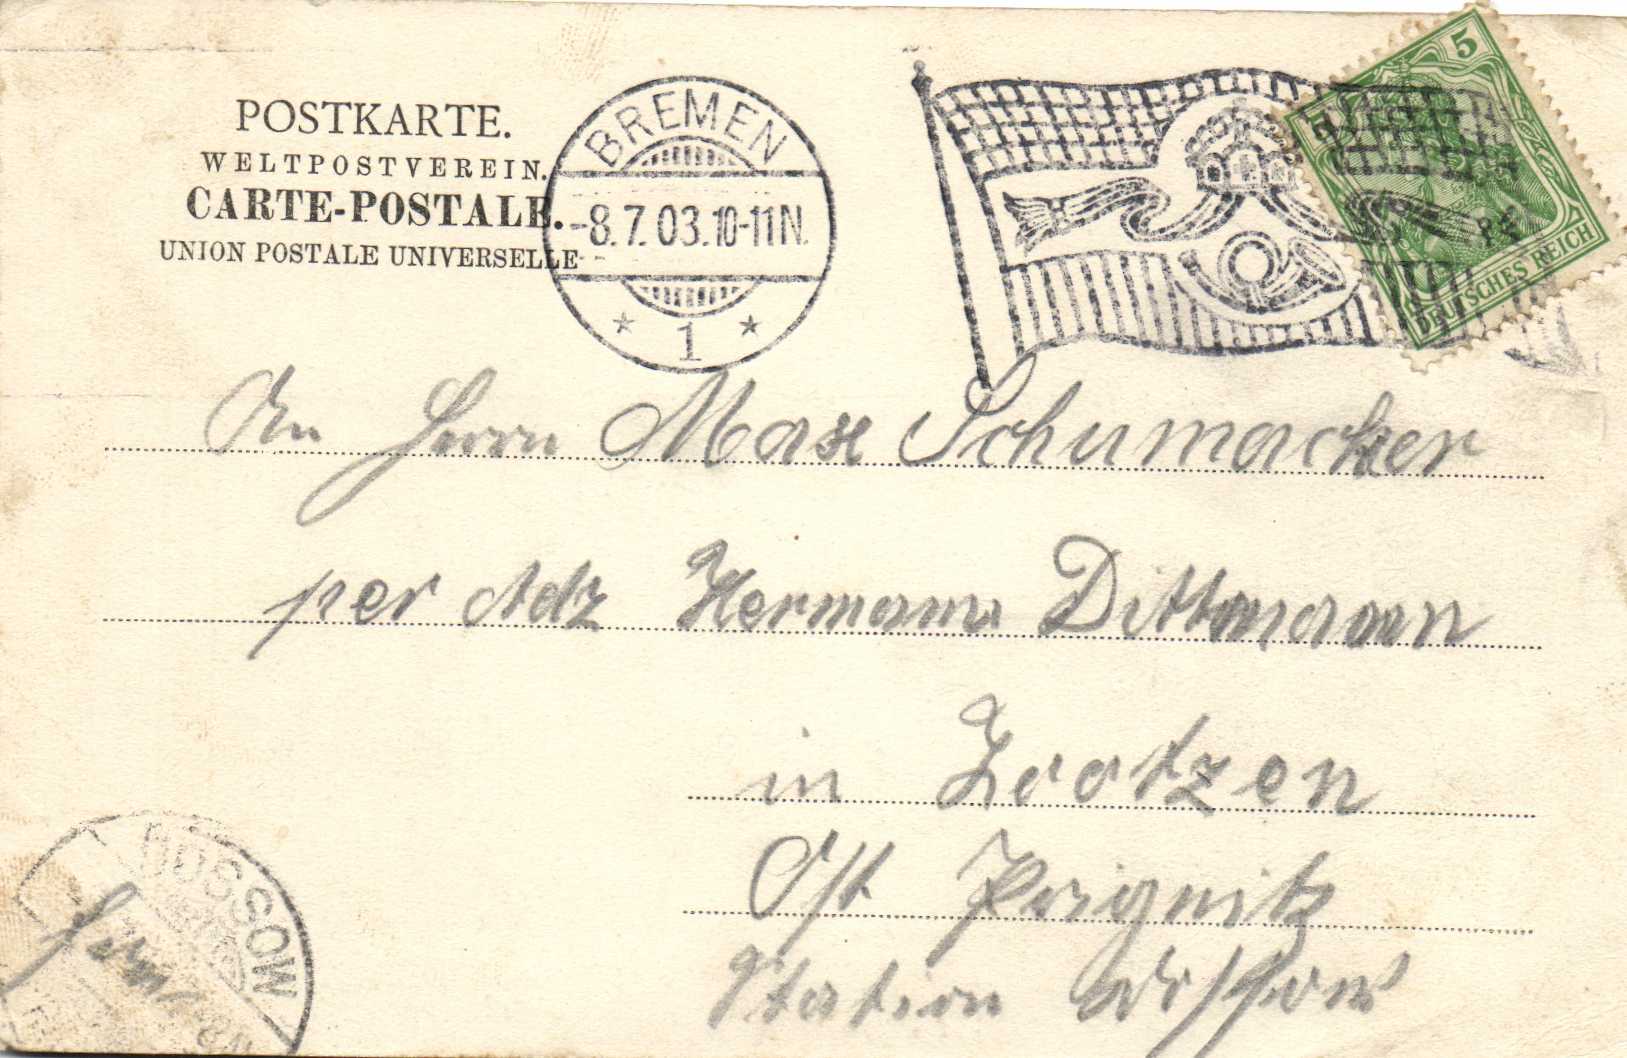 POSTKARTE.
WELTPOSTVEREIN.
CARTE-POSTALE.
UNION POSTALE UNIVERSELLE
BREMEN
-8.7.03.10-11N.
* 1 *
5
DEUTSCHES REICH
An Herrn Max Schumacker
per Adz Hermann Dittmann
in Zootzen
Ost Prignitz
Station
ROSSOW